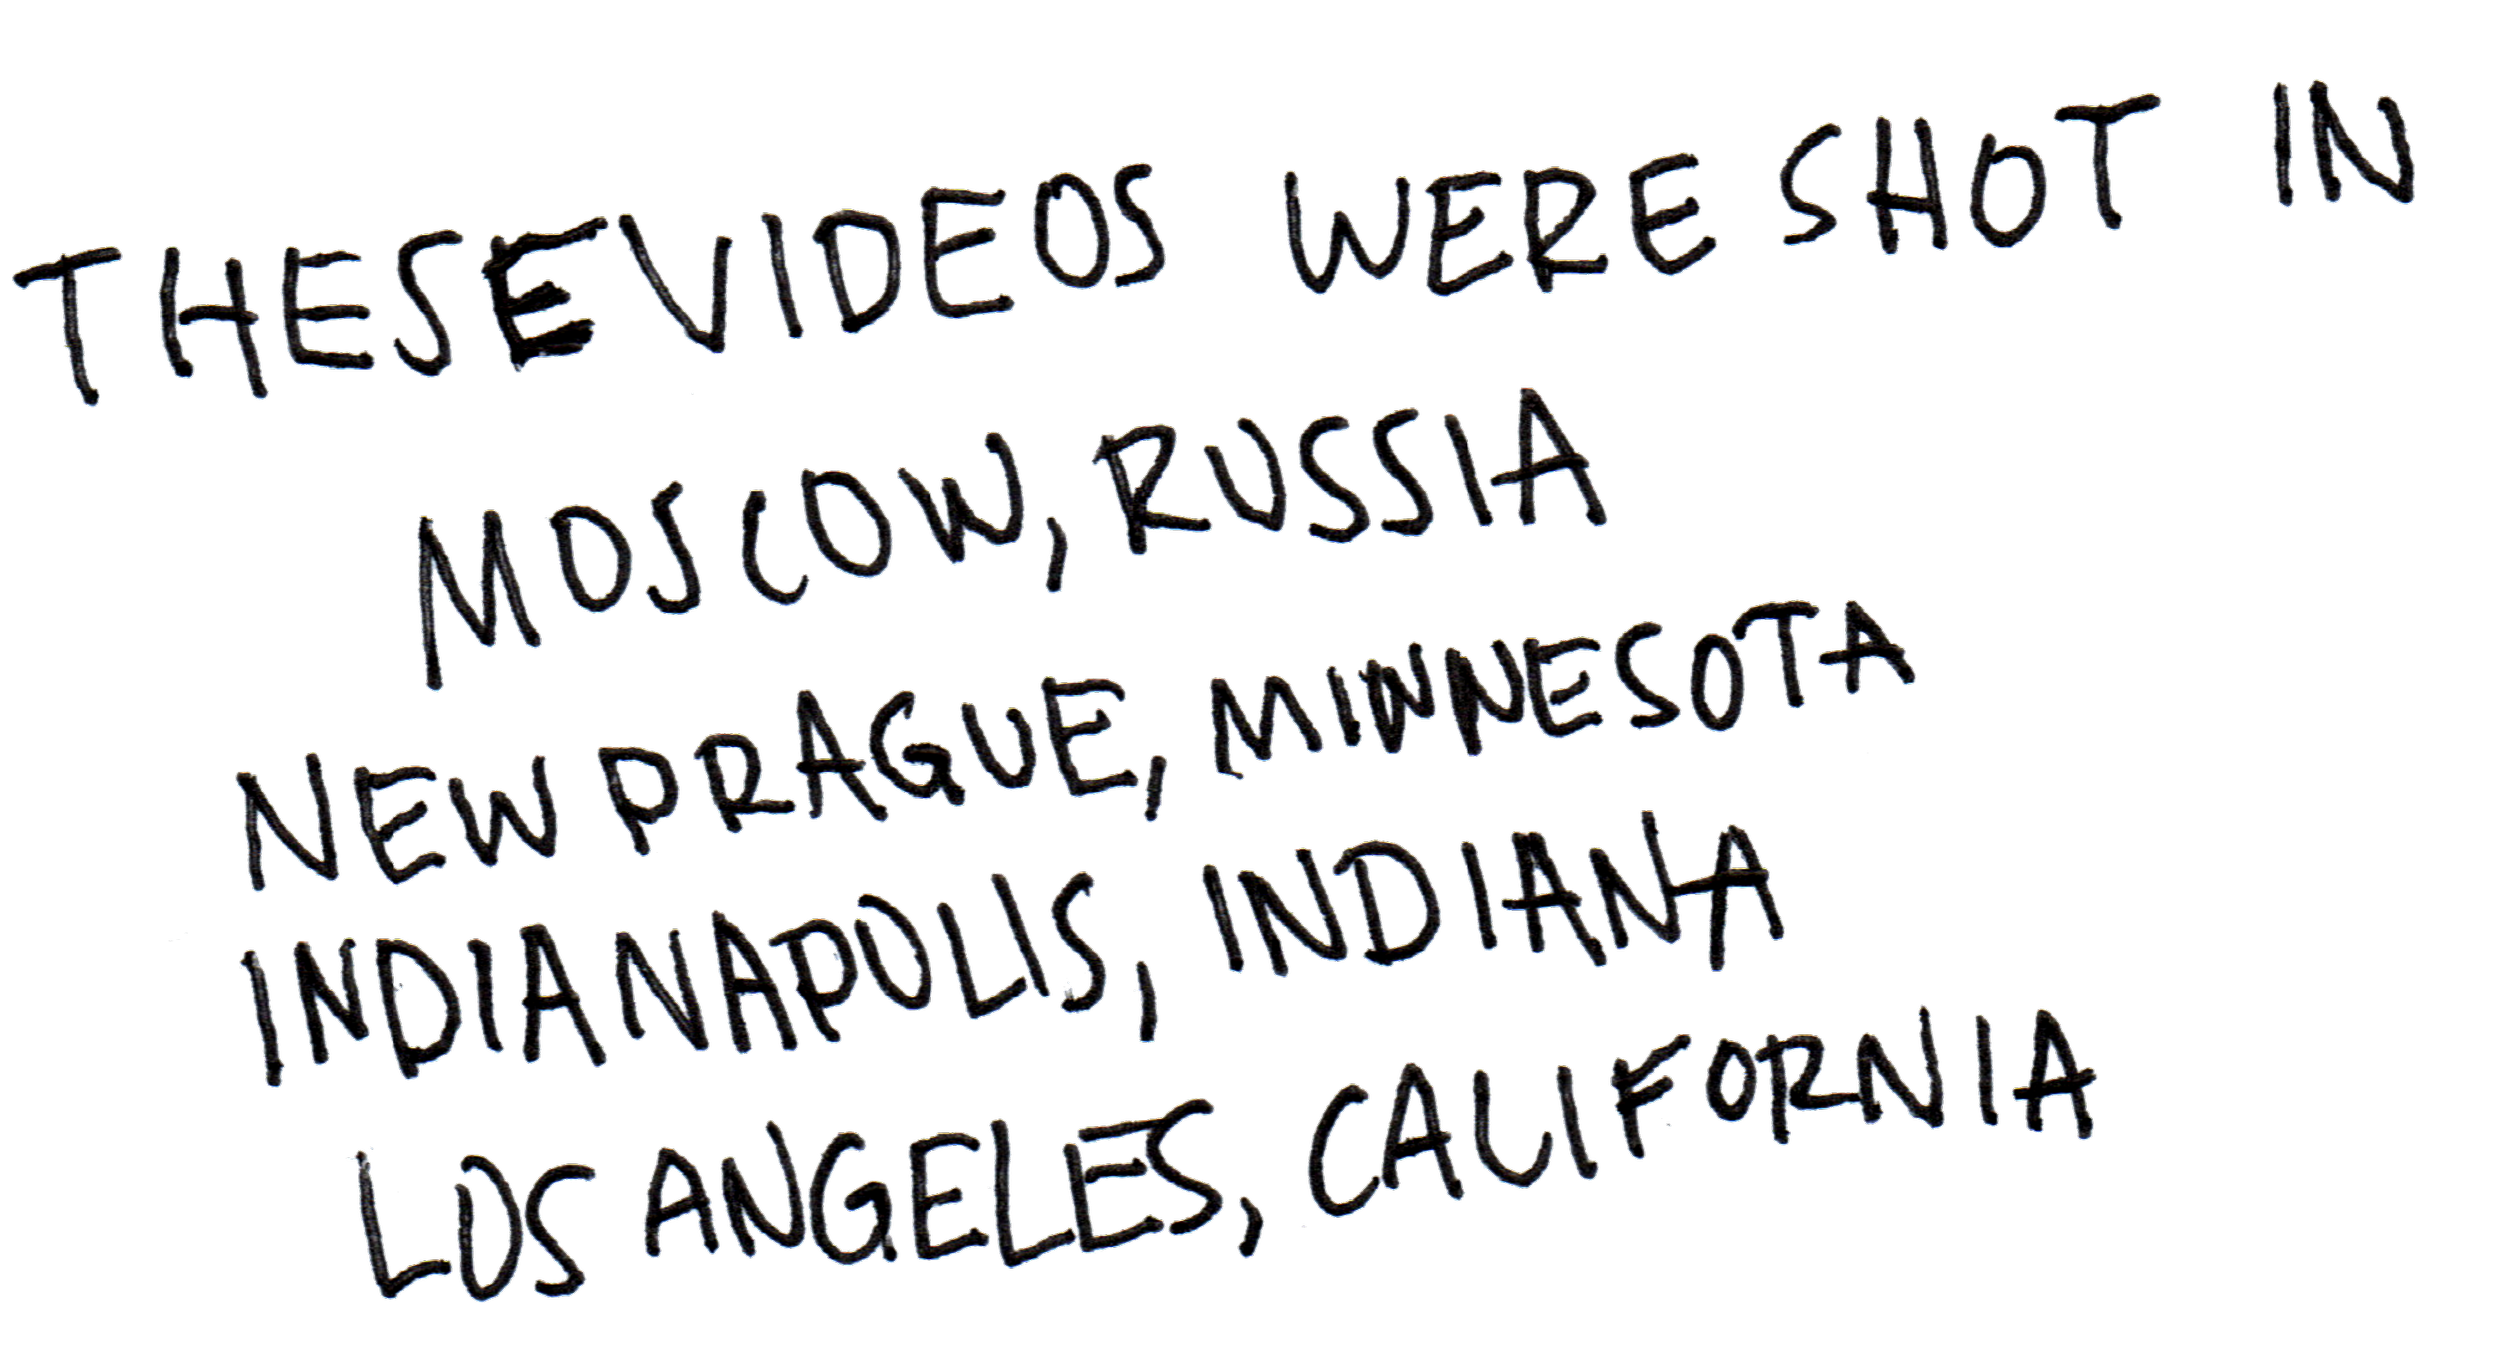 THESE VIDEOS WERE SHOT IN
MOSCOW, RUSSIA
NEW PRAGUE, MINNESOTA
INDIANAPOLIS, INDIANA
LOS ANGELES, CALIFORNIA